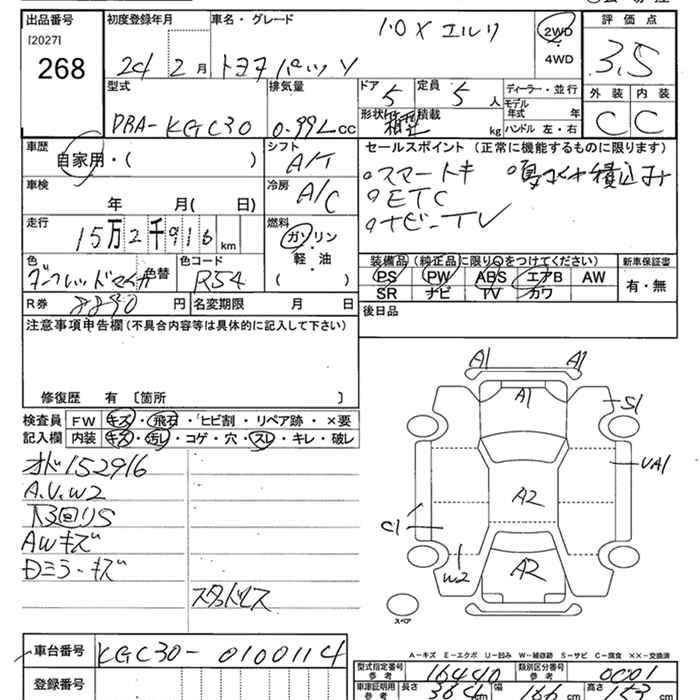 出品番号
[2027]
268
初度登録年月
24 2 月
車名・グレード
トヨタ パッソ
1.0 X
2WD
・
4WD
評価点
3.5
外装 内装
C C
型式
DBA-KGC30
排気量
0.99L cc
ドア 5
定員 5 人
形状 箱型
積載 kg
ディーラー・並行
モデル年式 年
ハンドル 左・右
車歴
自家用・( )
シフト
A/T
車検
年 月( 日)
冷房
A/C
走行
15万2千916 km
燃料
ガソリン
・
軽・油
( )
色
色替
色コード
R54
R券 8890 円
名変期限 月 日
セールスポイント (正常に機能するものに限ります)
スマートキ
ETC
ナビーTV
装備品(純正品に限り○をつけてください)
新車保証書
PS PW ABS エアB AW
SR ナビ TV カワ
有・無
後日品
注意事項申告欄(不具合内容等は具体的に記入して下さい)
修復歴 有 〔箇所 〕
検査員 FW キズ・飛石・ヒビ割・リペア跡・×要
記入欄 内装 キズ・汚れ・コゲ・穴・スレ・キレ・破レ
オド152916
A.U.W2
下回リS
AWキズ
Dミラーキズ
スタッドレス
A1 A1
A1
S1
UA1
A2
C1
W2
A2
スペア
A-キズ E-エクボ U-凹み W-補修跡 S-サビ C-腐食 ××-交換済
車台番号 KGC30-0100114
登録番号
型式指定番号 参考 16440
類別区分番号 参考 0001
車庫証明用 参考 長さ 364 cm 幅 166 cm 高さ 153 cm